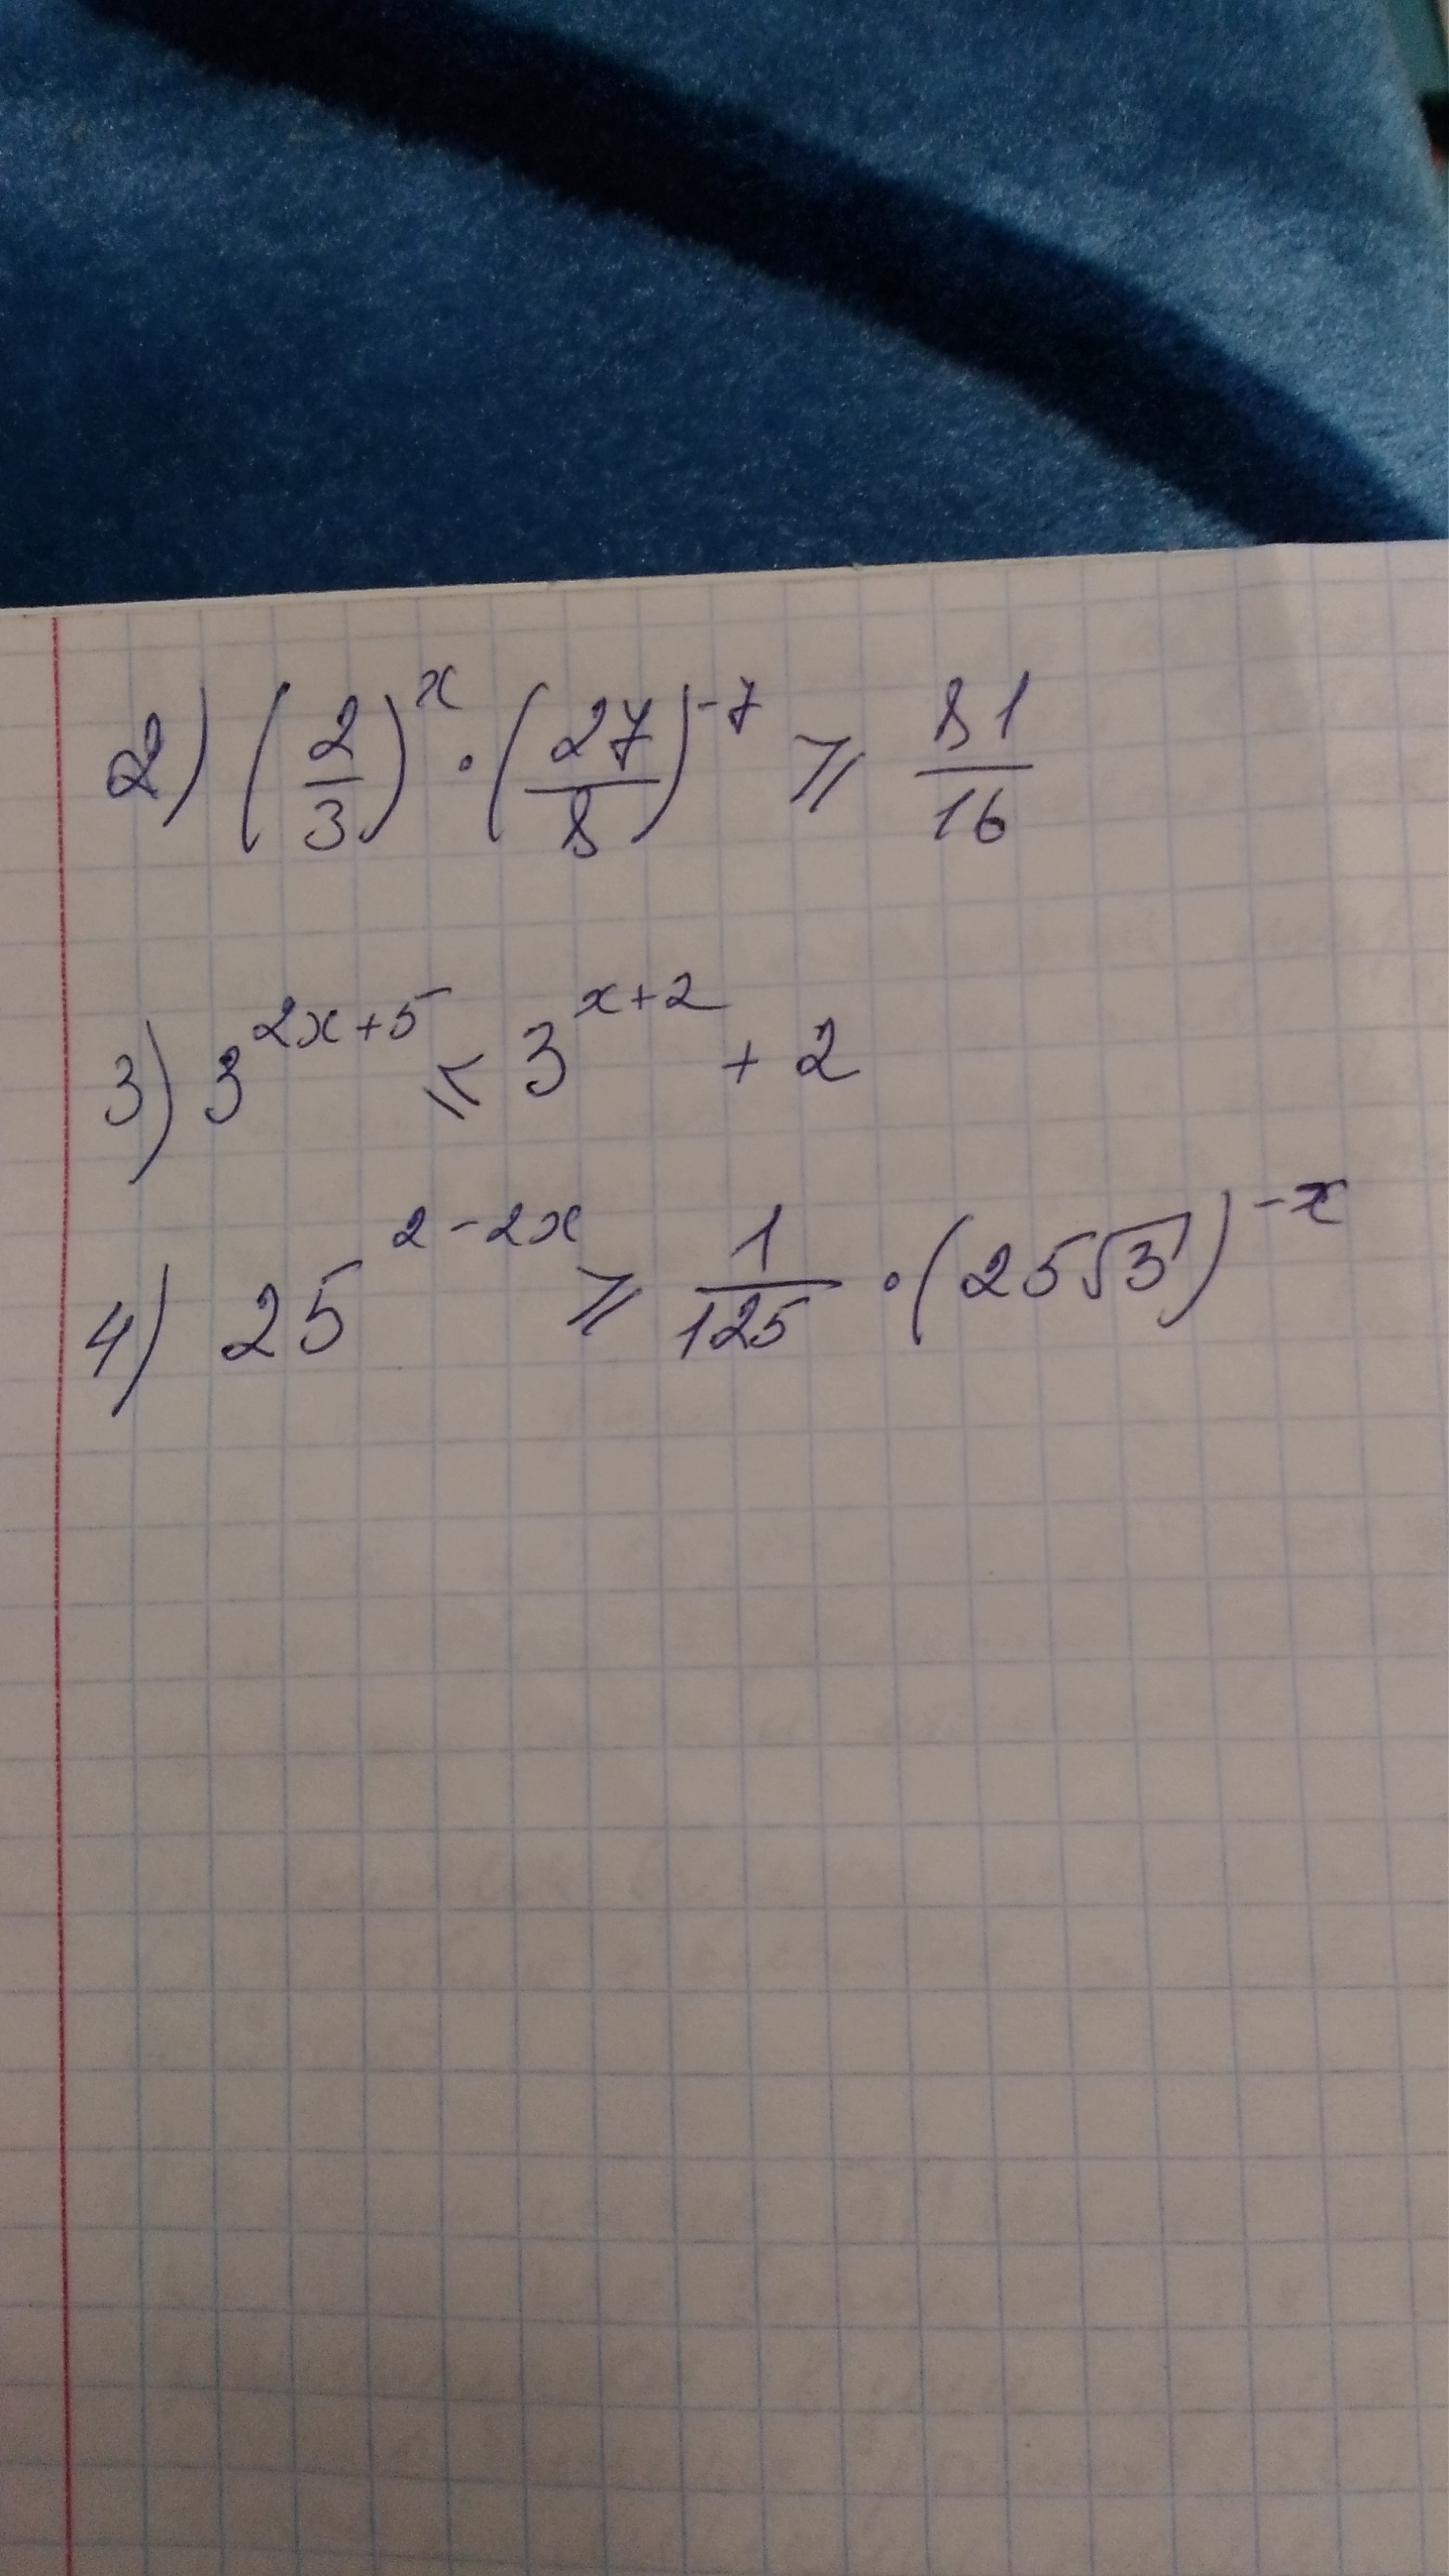 2) (2/3)^x · (27/8)^-7 ⩾ 81/16
3) 3^2x+5 ⩽ 3^x+2 + 2
4) 25^2-2x ⩾ 1/125 · (25√3)^-x